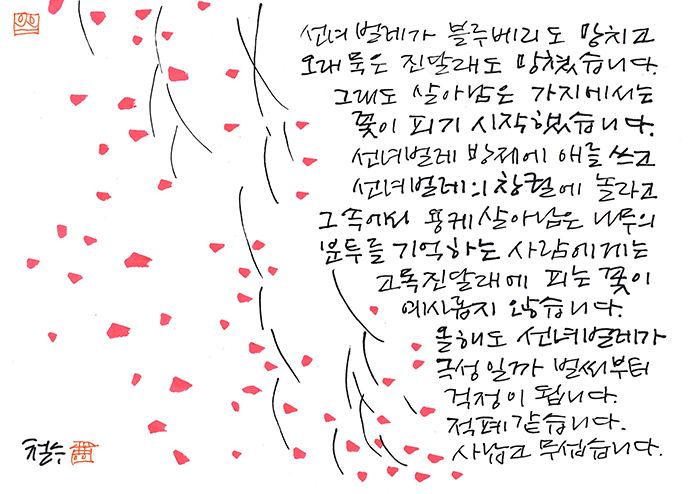 선녀벌레가 블루베리도 망치고
오래 묵은 진달래도 망쳤습니다.
그래도 살아남은 가지에서는
꽃이 피기 시작했습니다.
선녀벌레 방제에 애를 쓰고
선녀벌레의 창궐에 놀라고
그 속에서 용케 살아남은 나무의
분투를 기억하는 사람에게는
고목진달래에 피는 꽃이
예사롭지 않습니다.
올해도 선녀벌레가
극성일까 벌써부터
걱정이 됩니다.
적폐 같습니다.
사납고 무섭습니다.
철수